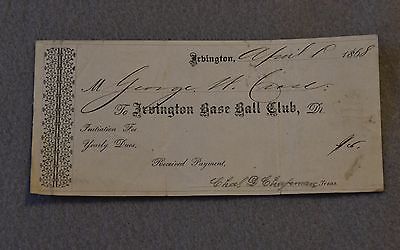 Irvington, April 8 1868
M George W. Case.
To Irvington Base Ball Club, Dr.
Initiation Fee
Yearly Dues,
Received Payment,
Chas D Chapman, Treas